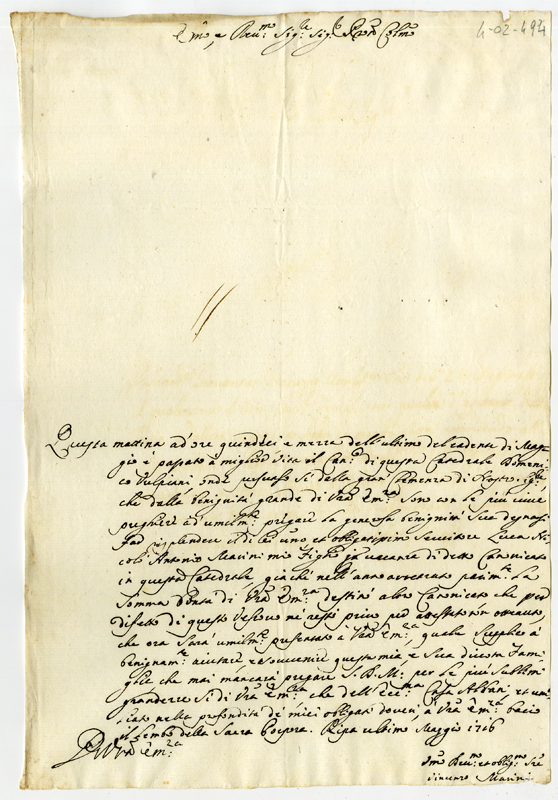 4-02-494
E.mo, e Reu.mo Sig.re Sig.r P.ron Col.mo
Questa mattina ad' ore quindeci e mezza dell' ultimo del cadente di Mag-
gio è passato à miglior Vita il Can.co di questa Catedrale Domeni-
co Vulpiani onde si dalla gran Clemenza di Nostro Sig.re
che dalla benignità grande di Vra Em.za Sono con le più vive
preghiere ad umilm.te pregare la generosa benignità Sua degnarsi
far risplendere di Lei uno et obligatissimo Servitore Luca Ni-
colò Antonio Marini mio Figlio vacanza di detto Canonicato
in questa Catedrale già che nell' anno parim.te La
Somma Bontà di Vra Em.za destinò altro Canonicato che per
difetto di questo Vescovo nè restò privo per
che ora Sarà umilm.te presentato à Vra Em.za, quale Supplico à
benignam.te aiutare e souvenire questa mia, e Sua divota Fami-
glia che mai mancarà pregare S. D. M. per le più Sublimi
grandezze Si di Vra Em.za che dell' Casa Albani, et
nella profondità de' miei obligati doveri, à Vra Em.za bacio
il lembo della Sacra Porpora. Ripa ultimo Maggio 1716
D Vra Em.za
Reu.mo et oblig.mo Sre
Vincenzo Marini